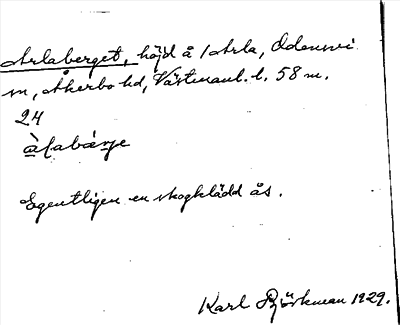 Arlaberget, höjd å 1 Arla, Odensvi
sn, Åkerbo hd, Västmanl. l. 58 m.
24
àḷabárje
Egentligen en skogklädd ås.
Karl Björkman 1929.